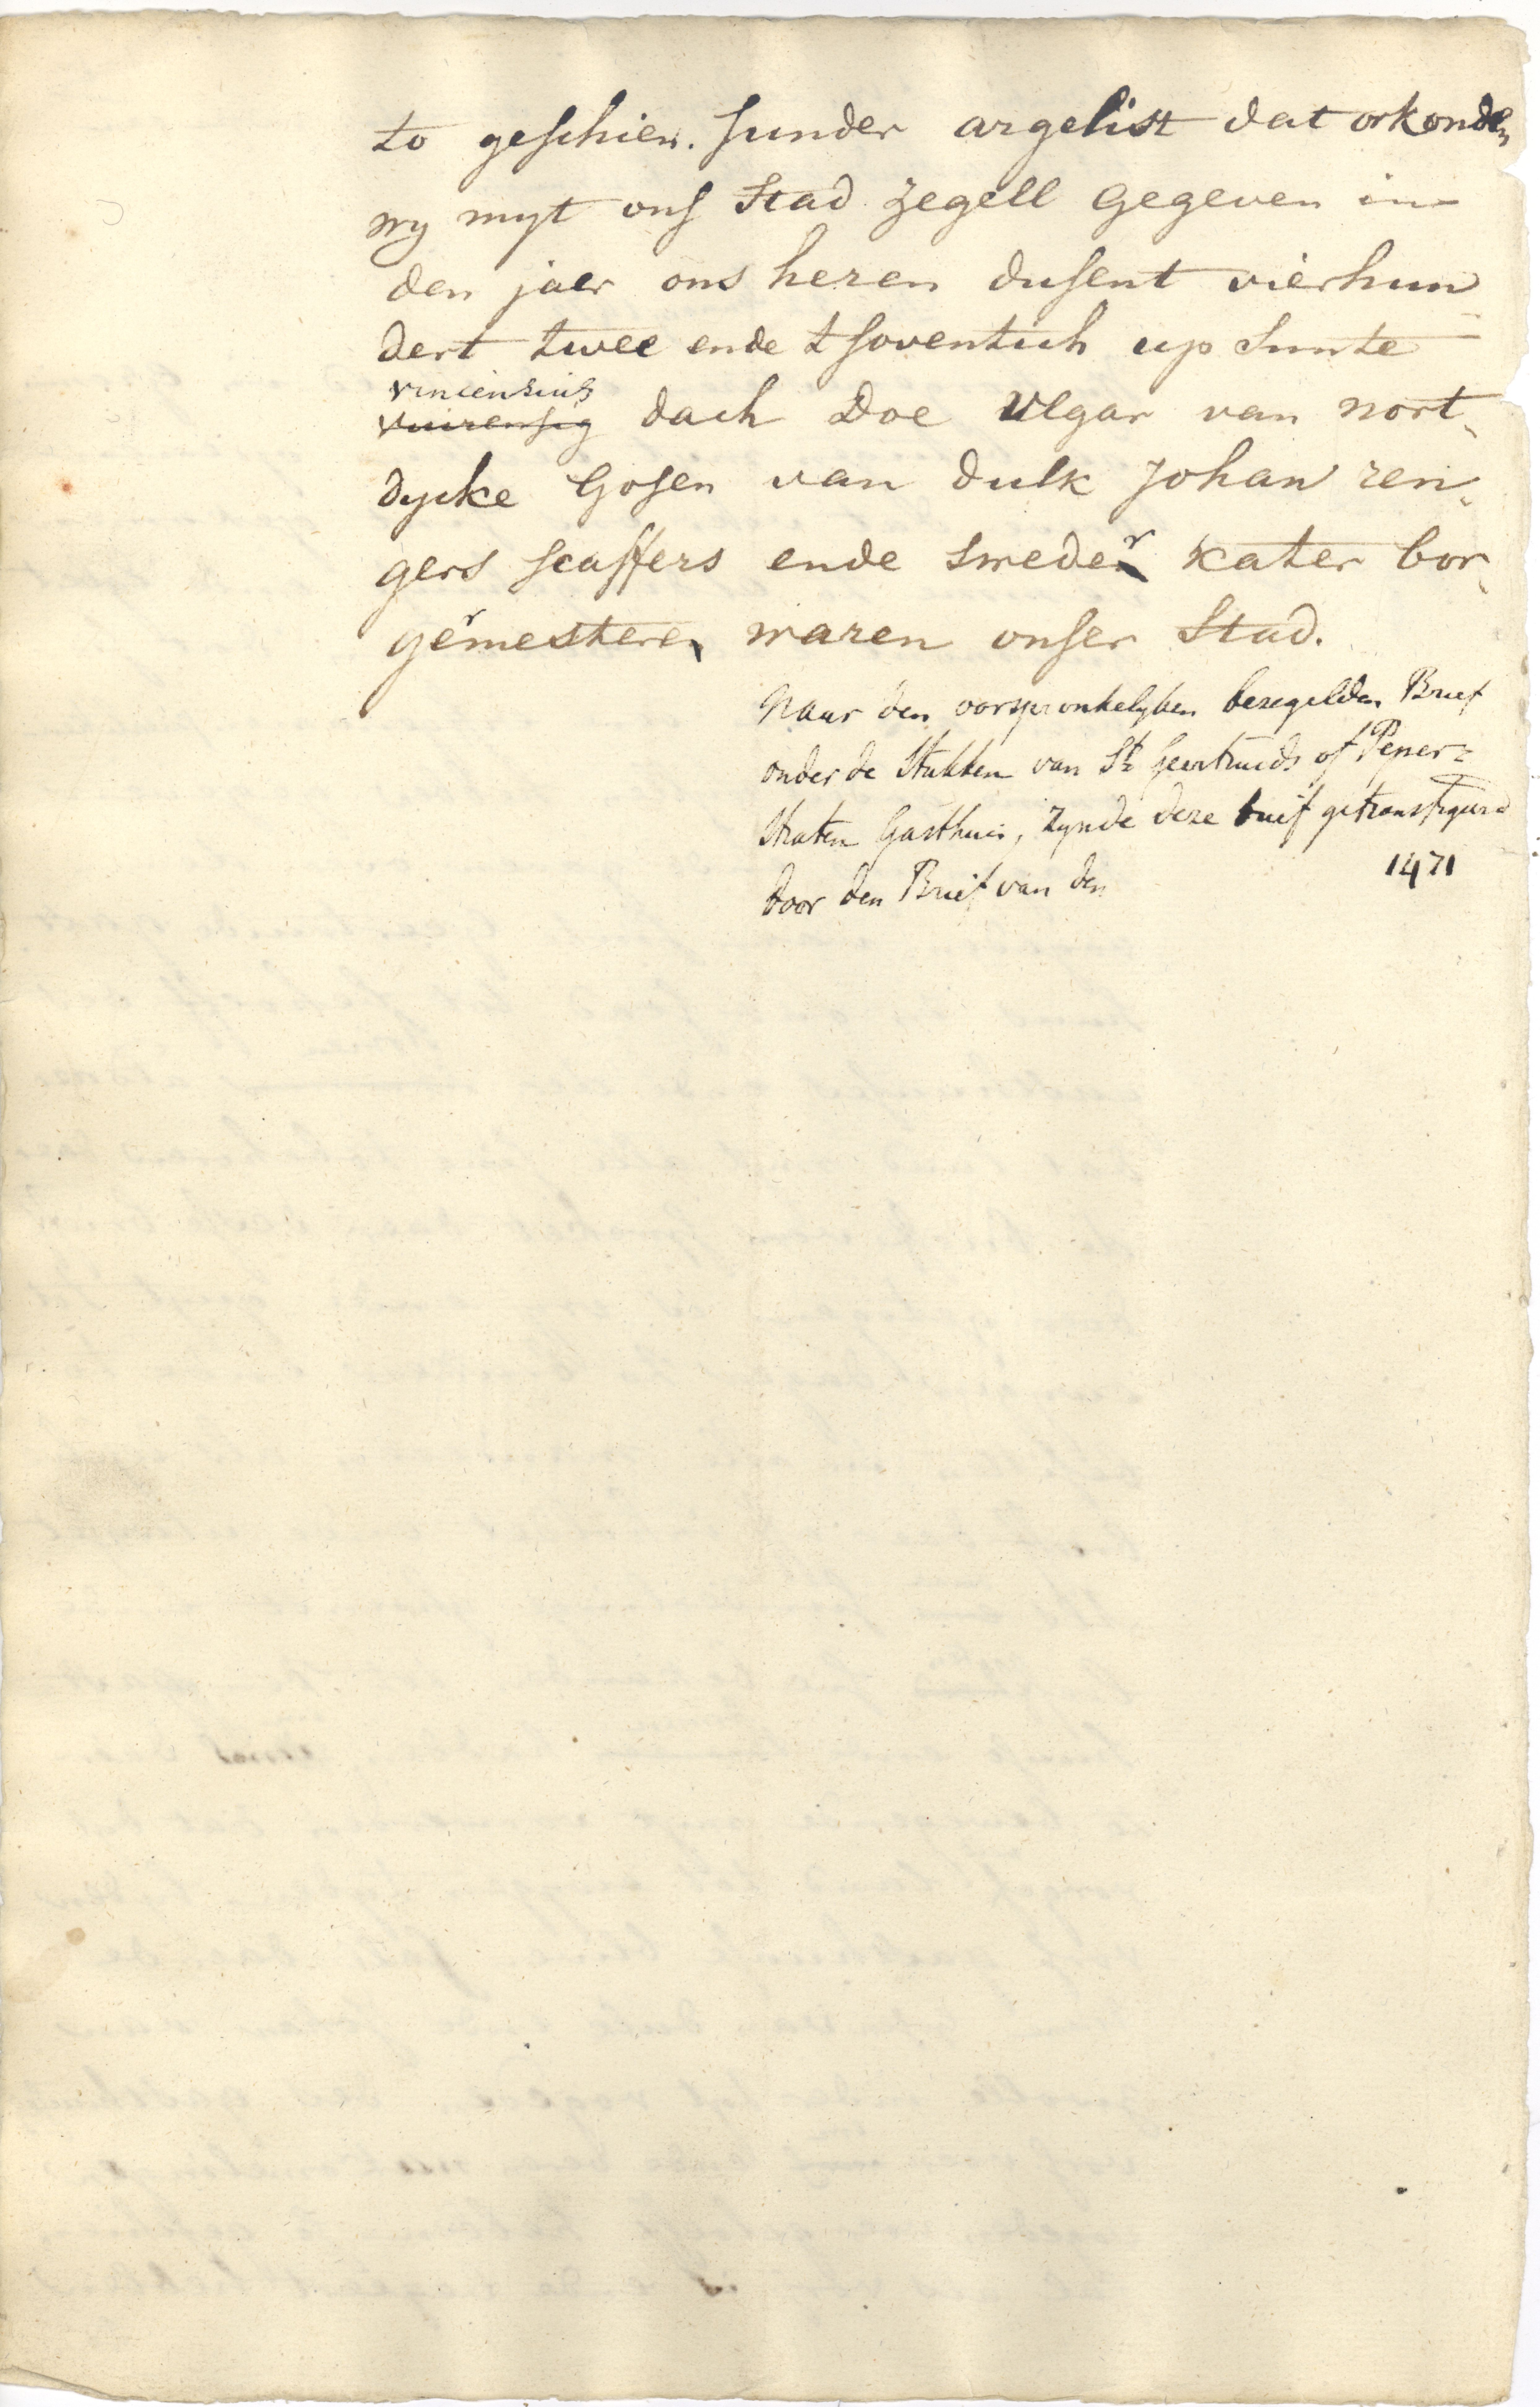 to geschien. sunder argelist dat orkonden
wy myt ons Stad zegell Gegeven in
den jaer ons heren dusent vierhun
dert twee ende tsoventich up Sunte
vincensius
dach Doe Ulgar van nort
dycke Gosen van dulk Johan ren
gers scaffers ende sweder kater bor
germestere waren onser Stad.
Naar den oorspronkelyken bezegelden Brief
onder de Stukken van St. Geertruids of Peper=
straten Gasthuis, zynde deze brief getransfigeerd
door den Brief van den 1471